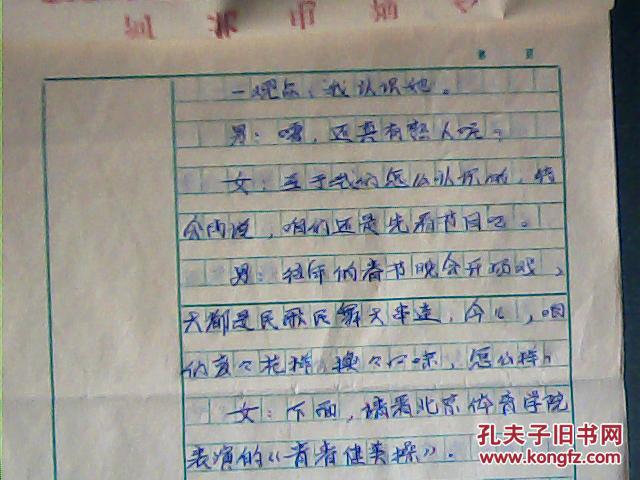 一观众：我认识她。
男：嘿，还真有熟人呢？
女：至于我们怎么认识的，待
会再说，咱们还是先看节目吧。
男：往年的春节晚会开场戏，
大都是民歌民舞大串连，今儿，咱
们变々花样，换々口味，怎么样？
女：下面，请看北京体育学院
表演的《青春健美操》。
孔夫子旧书网
www.kongfz.com